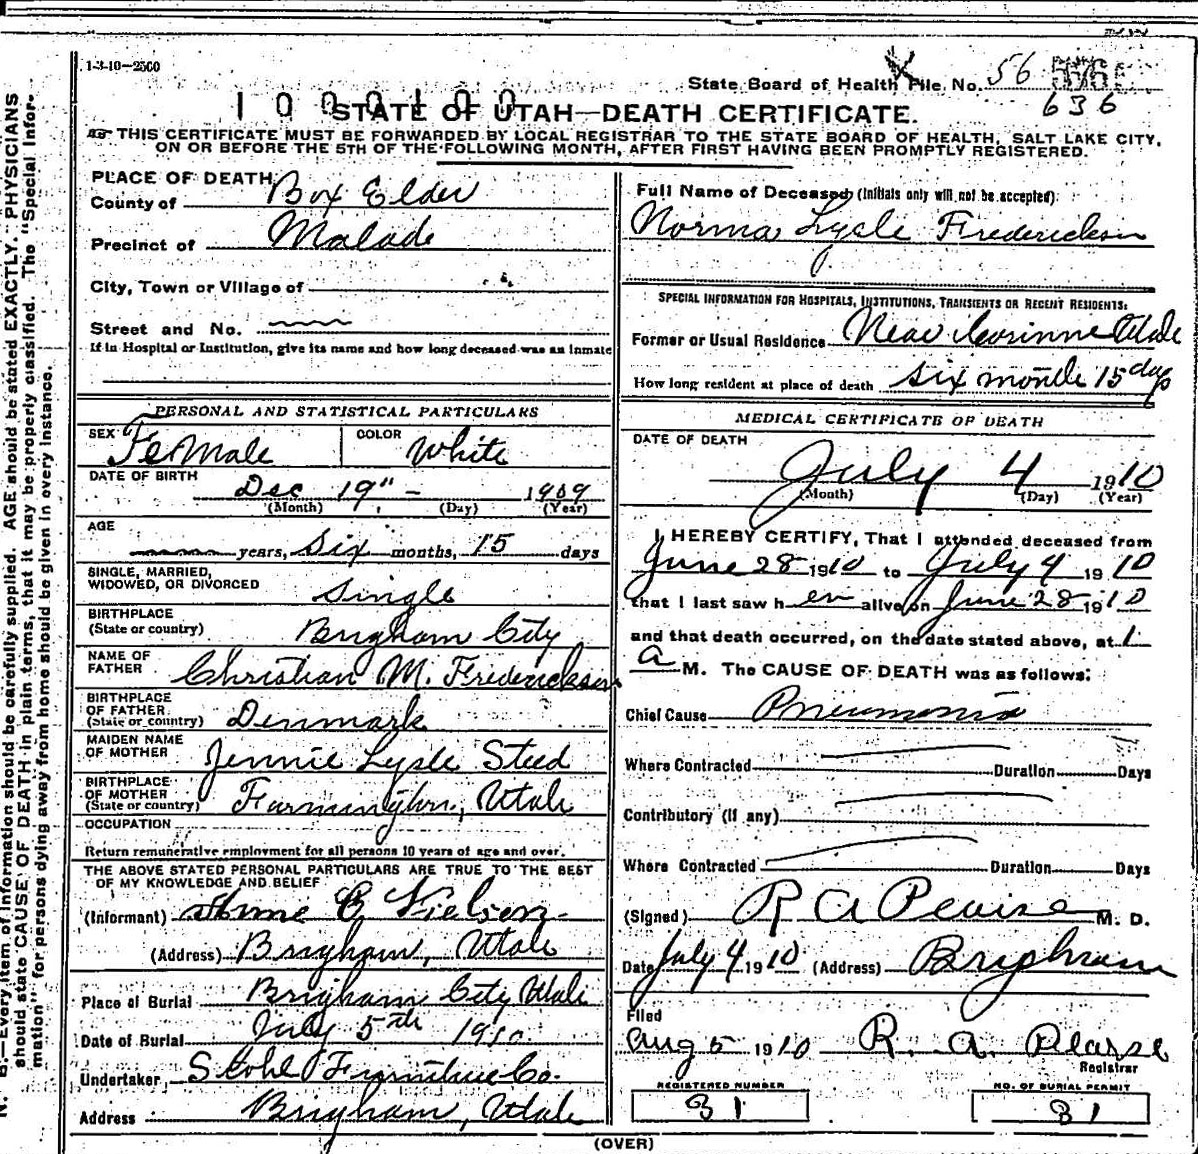 1-3-10-2500
State Board of Health File No. 56
636
1 0 0 0 1 0 0
STATE OF UTAH—DEATH CERTIFICATE.
THIS CERTIFICATE MUST BE FORWARDED BY LOCAL REGISTRAR TO THE STATE BOARD OF HEALTH, SALT LAKE CITY,
ON OR BEFORE THE 5TH OF THE FOLLOWING MONTH, AFTER FIRST HAVING BEEN PROMPTLY REGISTERED.
N. B.—Every item of information should be carefully supplied. AGE should be stated EXACTLY. PHYSICIANS
should state CAUSE OF DEATH in plain terms, that it may be properly classified. The "Special Infor-
mation" for persons dying away from home should be given in every instance.
PLACE OF DEATH
County of Box Elder
Precinct of Malade
City, Town or Village of
Street and No.
If in Hospital or Institution, give its name and how long deceased was an inmate
PERSONAL AND STATISTICAL PARTICULARS
SEX FeMale COLOR White
DATE OF BIRTH
Dec 19" - 1909
(Month) (Day) (Year)
AGE
years, Six months, 15 days
SINGLE, MARRIED,
WIDOWED, OR DIVORCED Single
BIRTHPLACE
(State or country) Brigham City
NAME OF
FATHER Christian M. Frederickson
BIRTHPLACE
OF FATHER
(State or country) Denmark
MAIDEN NAME
OF MOTHER Jennie Lysle Steed
BIRTHPLACE
OF MOTHER
(State or country) Farmington, Utah
OCCUPATION
Return remunerative employment for all persons 10 years of age and over.
THE ABOVE STATED PERSONAL PARTICULARS ARE TRUE TO THE BEST
OF MY KNOWLEDGE AND BELIEF
(Informant) E Nielsen
(Address) Brigham, Utah
Place of Burial Brigham City Utah
Date of Burial July 5th 1910
Undertaker Stohl Furniture Co.
Address Brigham, Utah
Full Name of Deceased (Initials only will not be accepted):
Norma Lysle Frederickson
SPECIAL INFORMATION FOR HOSPITALS, INSTITUTIONS, TRANSIENTS OR RECENT RESIDENTS:
Former or Usual Residence Near Corinne Utah
How long resident at place of death six months 15 days
MEDICAL CERTIFICATE OF DEATH
DATE OF DEATH
July 4 1910
(Month) (Day) (Year)
I HEREBY CERTIFY, That I attended deceased from
June 28 1910 to July 4 1910
that I last saw her alive on June 28 1910
and that death occurred, on the date stated above, at 1
a M. The CAUSE OF DEATH was as follows:
Chief Cause Pneumonia
Where Contracted Duration Days
Contributory (If any)
Where Contracted Duration Days
(Signed) R A Pearse M. D.
Date July 4 1910 (Address) Brigham
Filed
Aug 5 1910 R. A. Pearse
Registrar
REGISTERED NUMBER
31
NO. OF BURIAL PERMIT
31
(OVER)